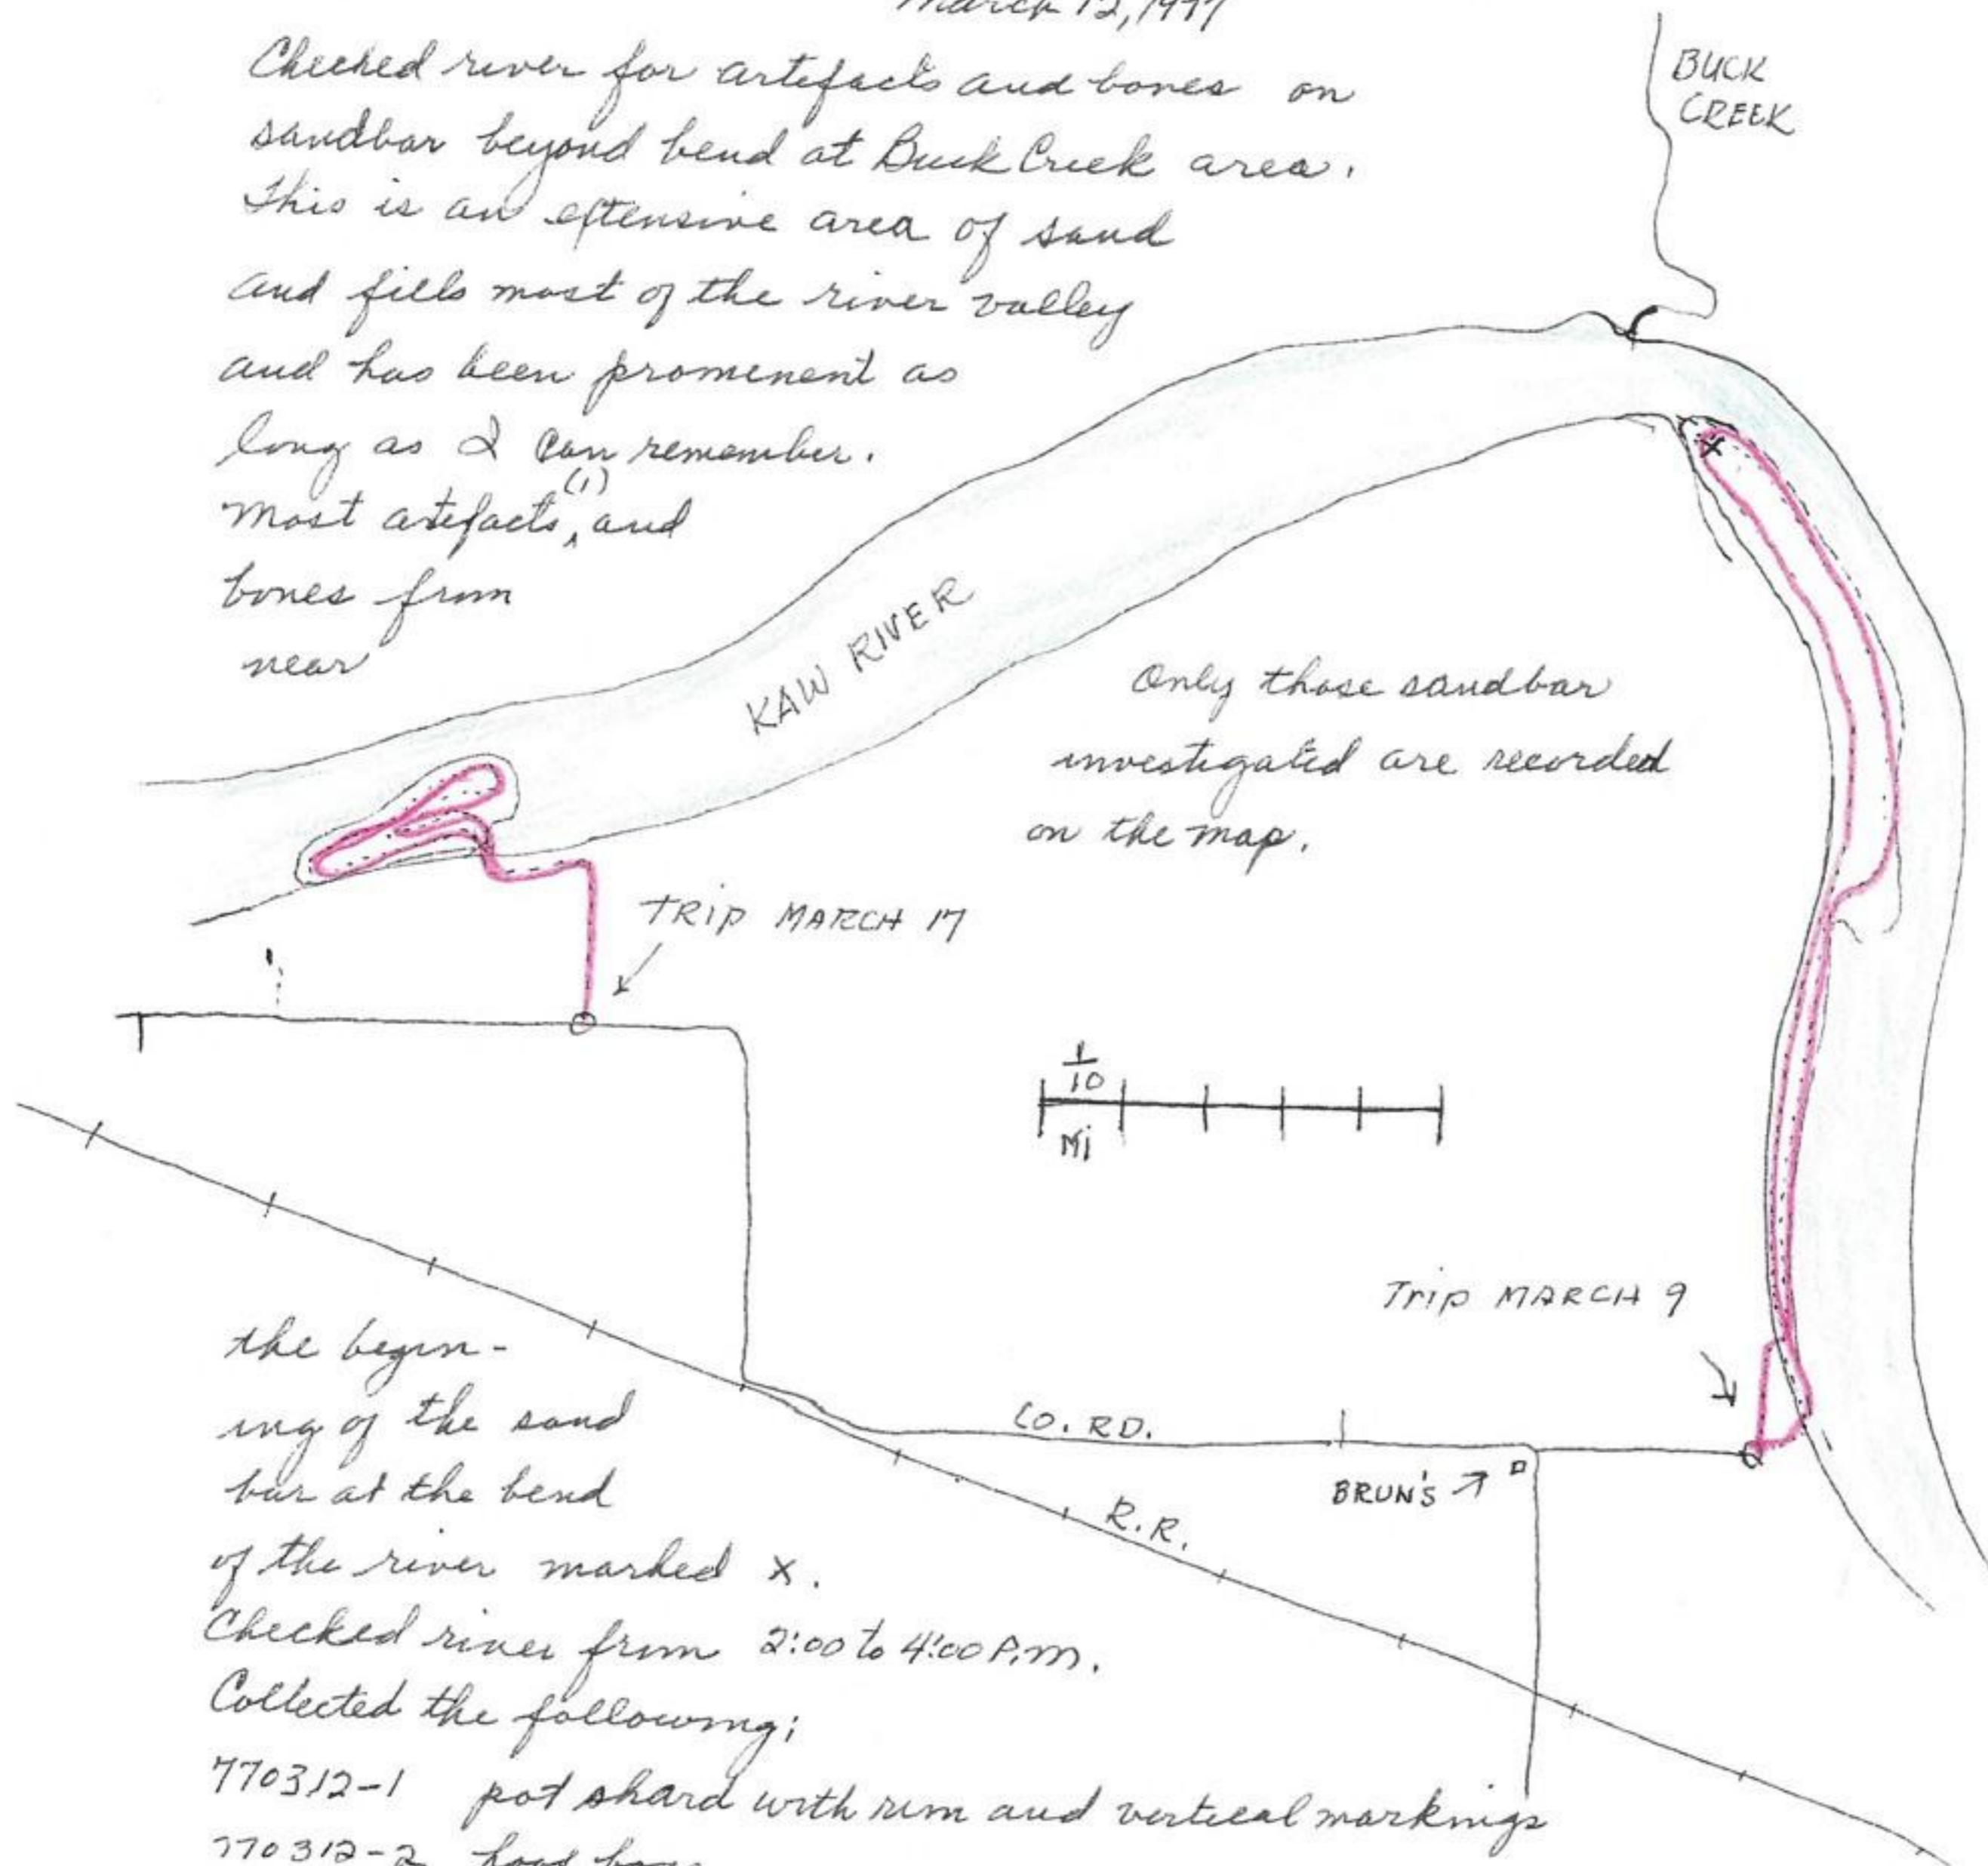 March 12, 1977
Checked river for artefacts and bones on
sandbar beyond bend at Buck Creek area.
This is an extensive area of sand
and fills most of the river valley
and has been promenent as
long as I can remember.
(1)
Most artefacts, and
bones from
near
the begin-
ing of the sand
bar at the bend
of the river marked x.
Checked river from 2:00 to 4:00 P.m.
Collected the following;
770312-1 pot shard with rim and vertical markings
770312-2
BUCK
CREEK
KAW RIVER
X
Only those sandbar
investigated are recorded
on the map.
TRIP MARCH 17
1/10
Mi
Trip MARCH 9
CO. RD.
BRUN'S
R.R.